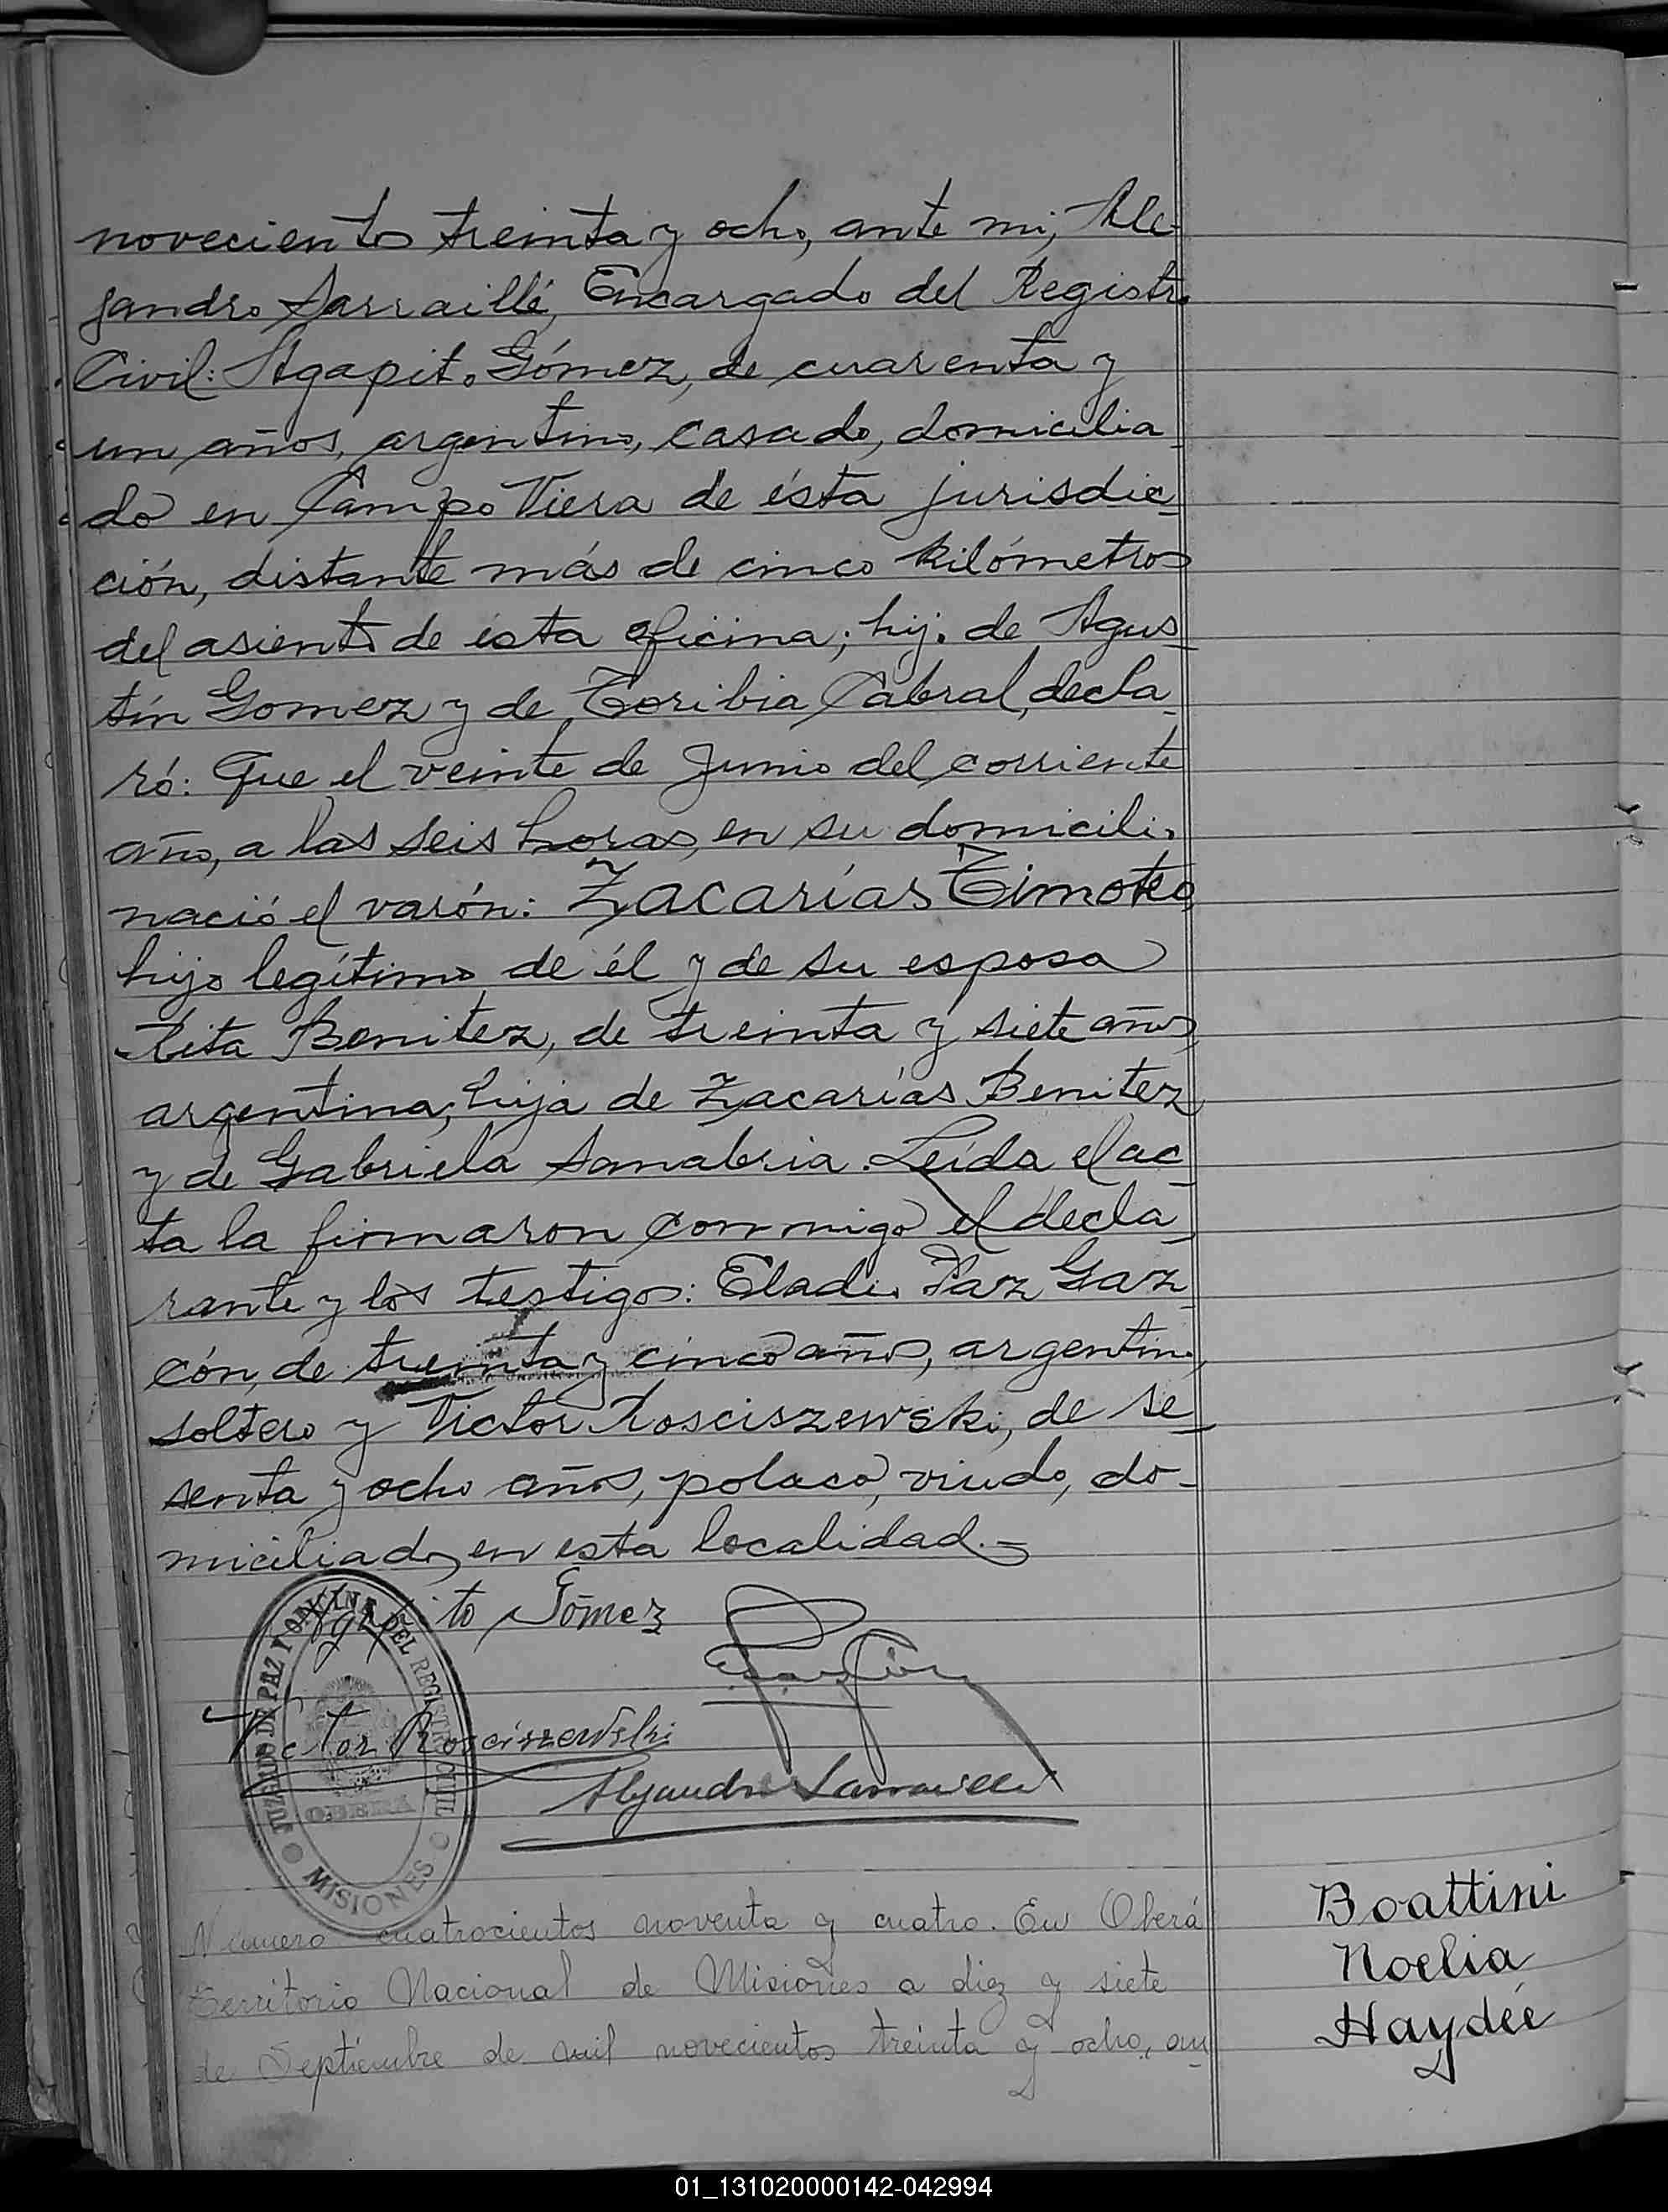 novecientos treinta y ocho, ante mi, Ale-
jandro Sarraillé, Encargado del Registro
Civil: Agapito Gómez, de cuarenta y
un años, argentino, casado, domicilia_
do en Campo Viera de ésta jurisdic_
ción, distante más de cinco kilómetros
del asiento de ésta oficina; hijo de Agus_
tín Gomez y de Toribia Cabral, decla_
ró: Que el veinte de Junio del corriente
año, a las seis horas, en su domicilio
nació el varón: Zacarías Timoteo,
hijo legítimo de él y de su esposa
Rita Benitez, de treinta y siete años,
argentina, hija de Zacarías Benitez
y de Gabriela Sanabria. Leída el ac_
ta la firmaron conmigo el decla_
rante y los testigos: Eladio Paz Gaz_
cón, de treinta y cinco años, argentino,
soltero y Victor Rosciszewski, de se_
senta y ocho años, polaco, viudo, do-
miciliados en esta localidad.-
Agapito Gómez
Victor Rosciszewski
Alejandro Sarraillé
JUZGADO DE PAZ Y OFICINA DEL REGISTRO CIVIL
OBERÁ
MISIONES
Número cuatrocientos noventa y cuatro. En Oberá
Territorio Nacional de Misiones a diez y siete
de Septiembre de mil novecientos treinta y ocho, an_
Boattini
Noelia
Haydée
01_131020000142-042994